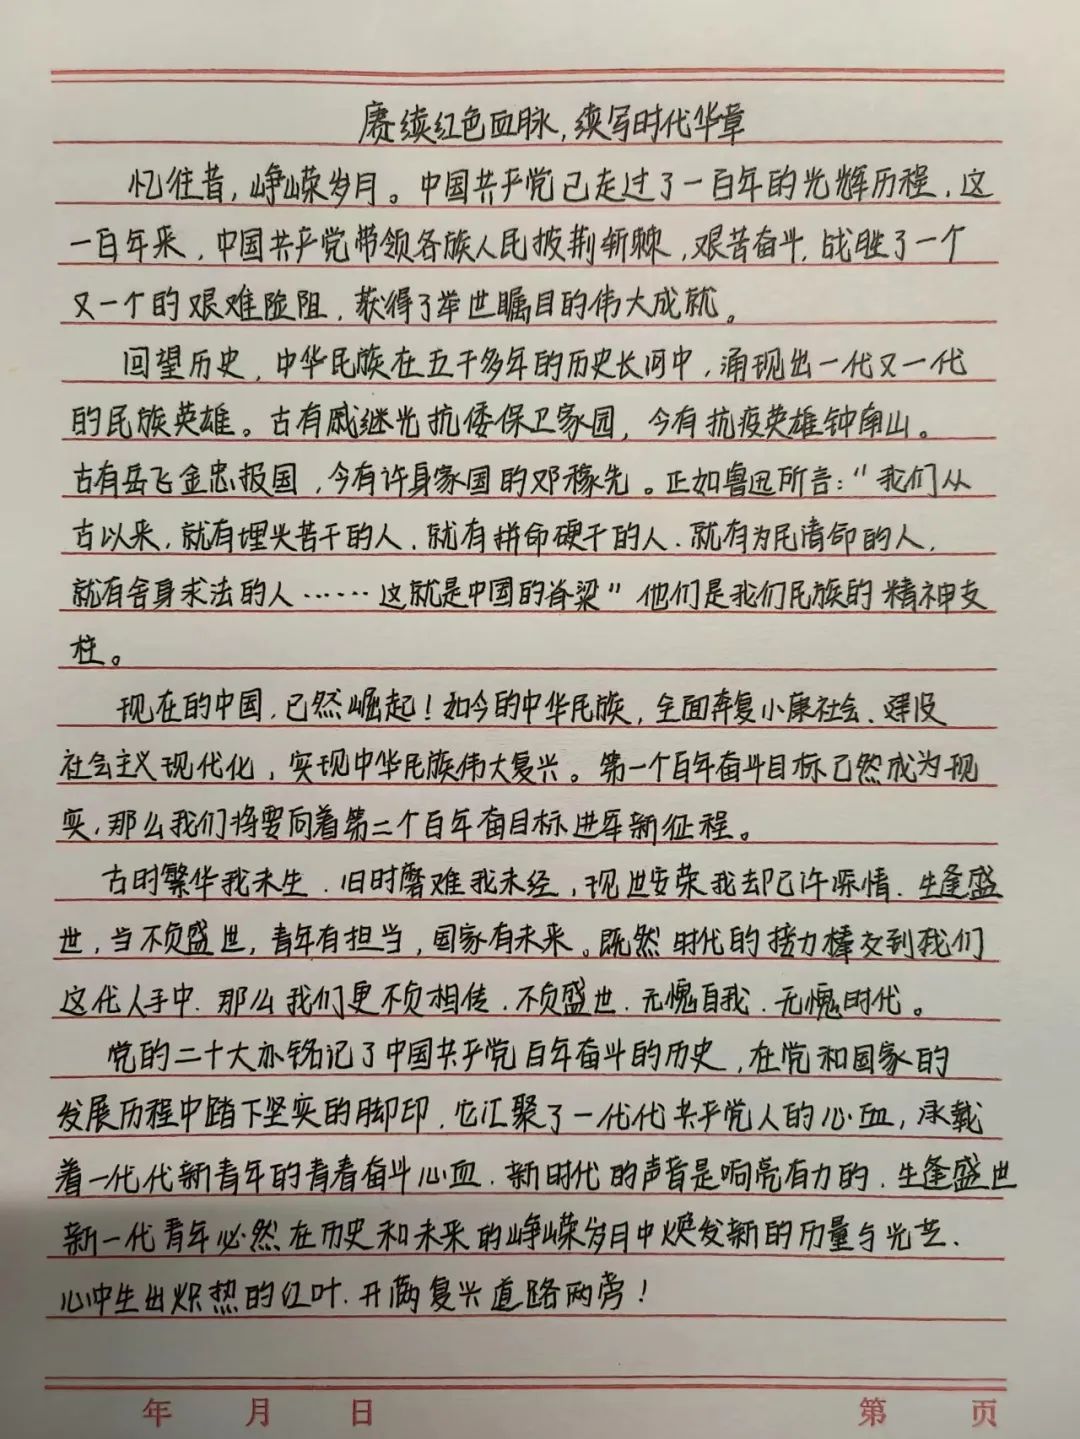 赓续红色血脉,续写时代华章
忆往昔,峥嵘岁月。中国共产党已走过了一百年的光辉历程,这
一百年来,中国共产党带领各族人民披荆斩棘,艰苦奋斗,战胜了一个
又一个的艰难险阻,获得了举世瞩目的伟大成就。
回望历史,中华民族在五千多年的历史长河中,涌现出一代又一代
的民族英雄。古有戚继光抗倭保卫家园,今有抗疫英雄钟南山。
古有岳飞金忠报国,今有许身家国的邓稼先。正如鲁迅所言:“我们从
古以来,就有埋头苦干的人,就有拼命硬干的人,就有为民请命的人,
就有舍身求法的人……这就是中国的脊梁”他们是我们民族的精神支
柱。
现在的中国,已然崛起!如今的中华民族,全面奔复小康社会、建设
社会主义现代化,实现中华民族伟大复兴。第一个百年奋斗目标已然成为现
实,那么我们将要向着第二个百年奋目标进军新征程。
古时繁华我未生,旧时磨难我未经,现世安荣我却已许深情,生逢盛
世,当不负盛世,青年有担当,国家有未来。既然时代的接力棒交到我们
这代人手中,那么我们更不负相传,不负盛世,无愧自我,无愧时代。
党的二十大亦铭记了中国共产党百年奋斗的历史,在党和国家的
发展历程中踏下坚实的脚印,它汇聚了一代代共产党人的心血,承载
着一代代新青年的青春奋斗心血,新时代的声音是响亮有力的,生逢盛世
新一代青年必然在历史和未来的峥嵘岁月中焕发新的力量与光芒,
心中生出炽热的红叶,开满复兴道路两旁!
年 月 日 第 页